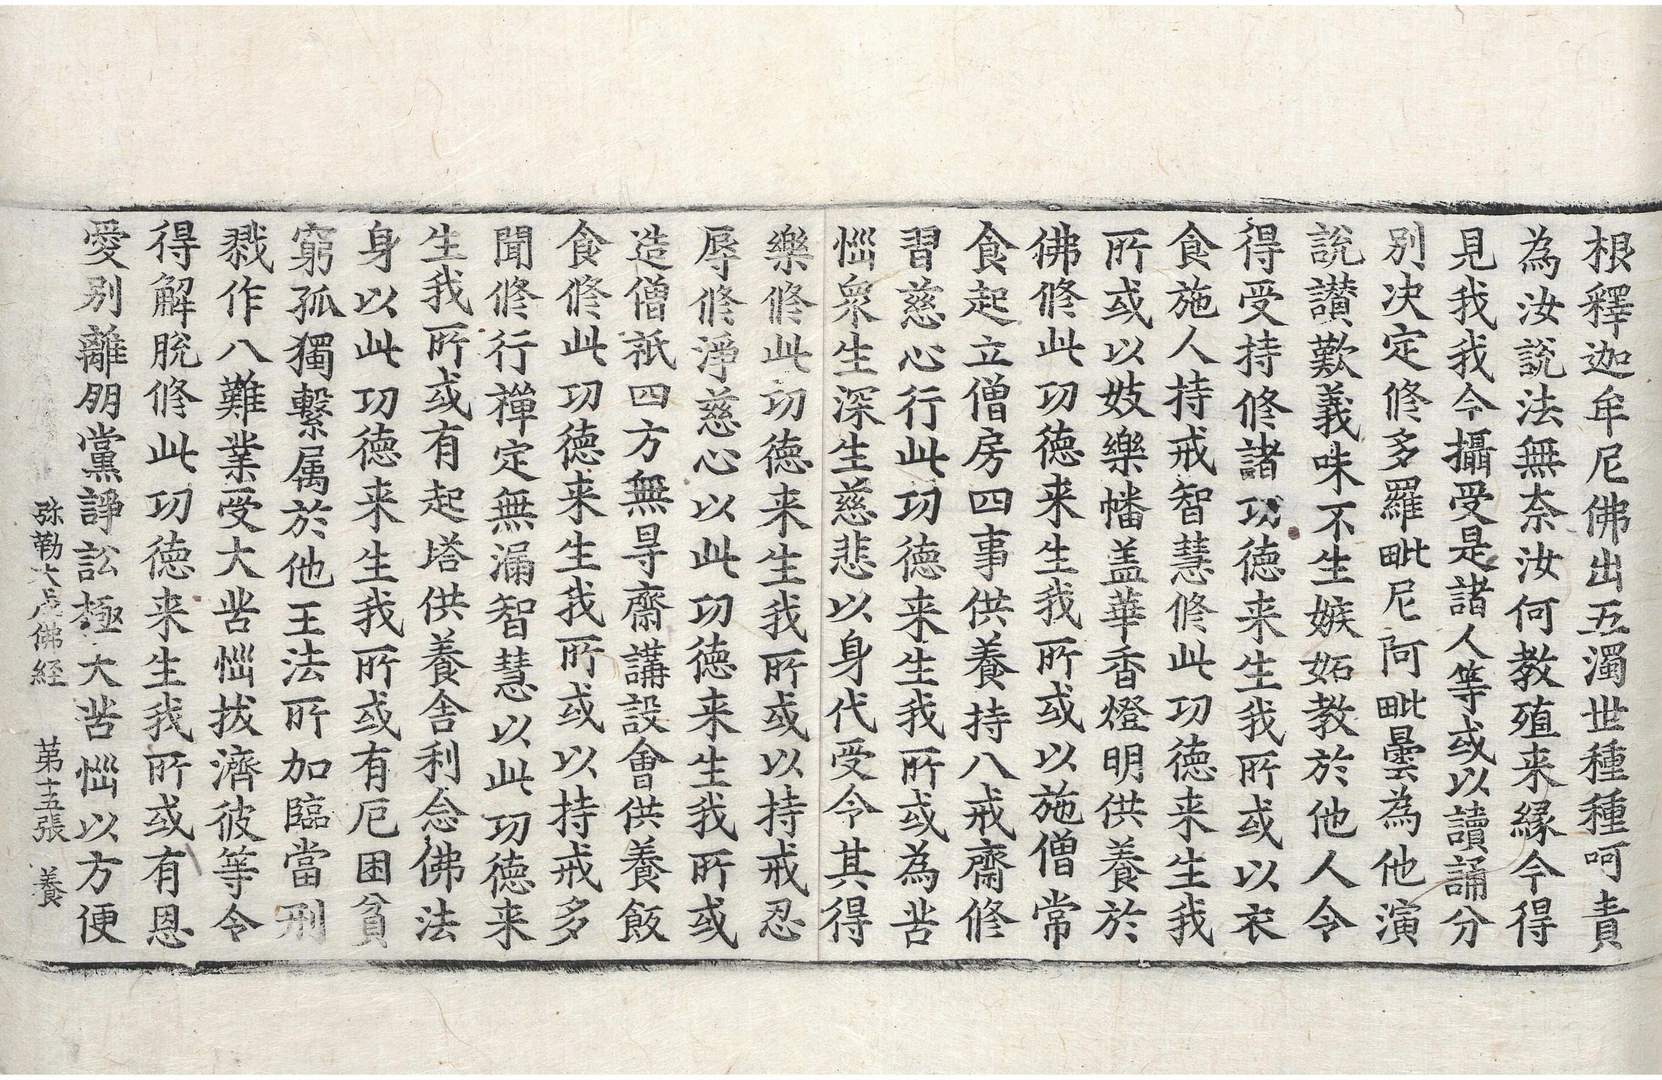 根釋迦牟尼佛出五濁世種種呵責
為汝說法無奈汝何教殖来緣今得
見我我今攝受是諸人等或以讀誦分
別決定修多羅毗尼阿毗曇為他演
說讃歎義味不生嫉妬教於他人令
得受持修諸功德来生我所或以衣
食施人持戒智慧修此功德来生我
所或以妓樂幡盖華香燈明供養於
佛修此功德来生我所或以施僧常
食起立僧房四事供養持八戒齋修
習慈心行此功德来生我所或為苦
惱衆生深生慈悲以身代受令其得
樂修此功德来生我所或以持戒忍
辱修淨慈心以此功德来生我所或
造僧祇四方無㝵齋講設會供養飯
食修此功德来生我所或以持戒多
聞修行禪定無漏智慧以此功德来
生我所或有起塔供養舍利念佛法
身以此功德来生我所或有厄困貧
窮孤獨繫属於他王法所加臨當刑
戮作八難業受大苦惱拔濟彼等令
得解脫修此功德来生我所或有恩
愛別離朋黨諍訟極大苦惱以方便
弥勒大成佛経　第十五張　養